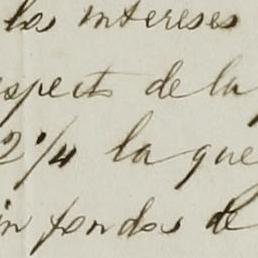 los intereses
especto de la
2 1/4 la que
in fondos de